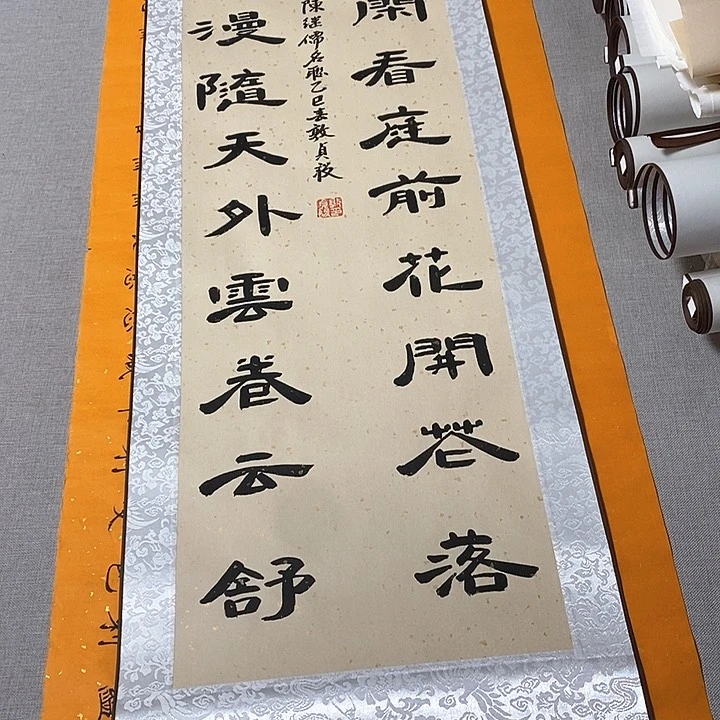 閑看庭前花開花落
漫隨天外雲卷云舒
陳继儒名聯乙巳